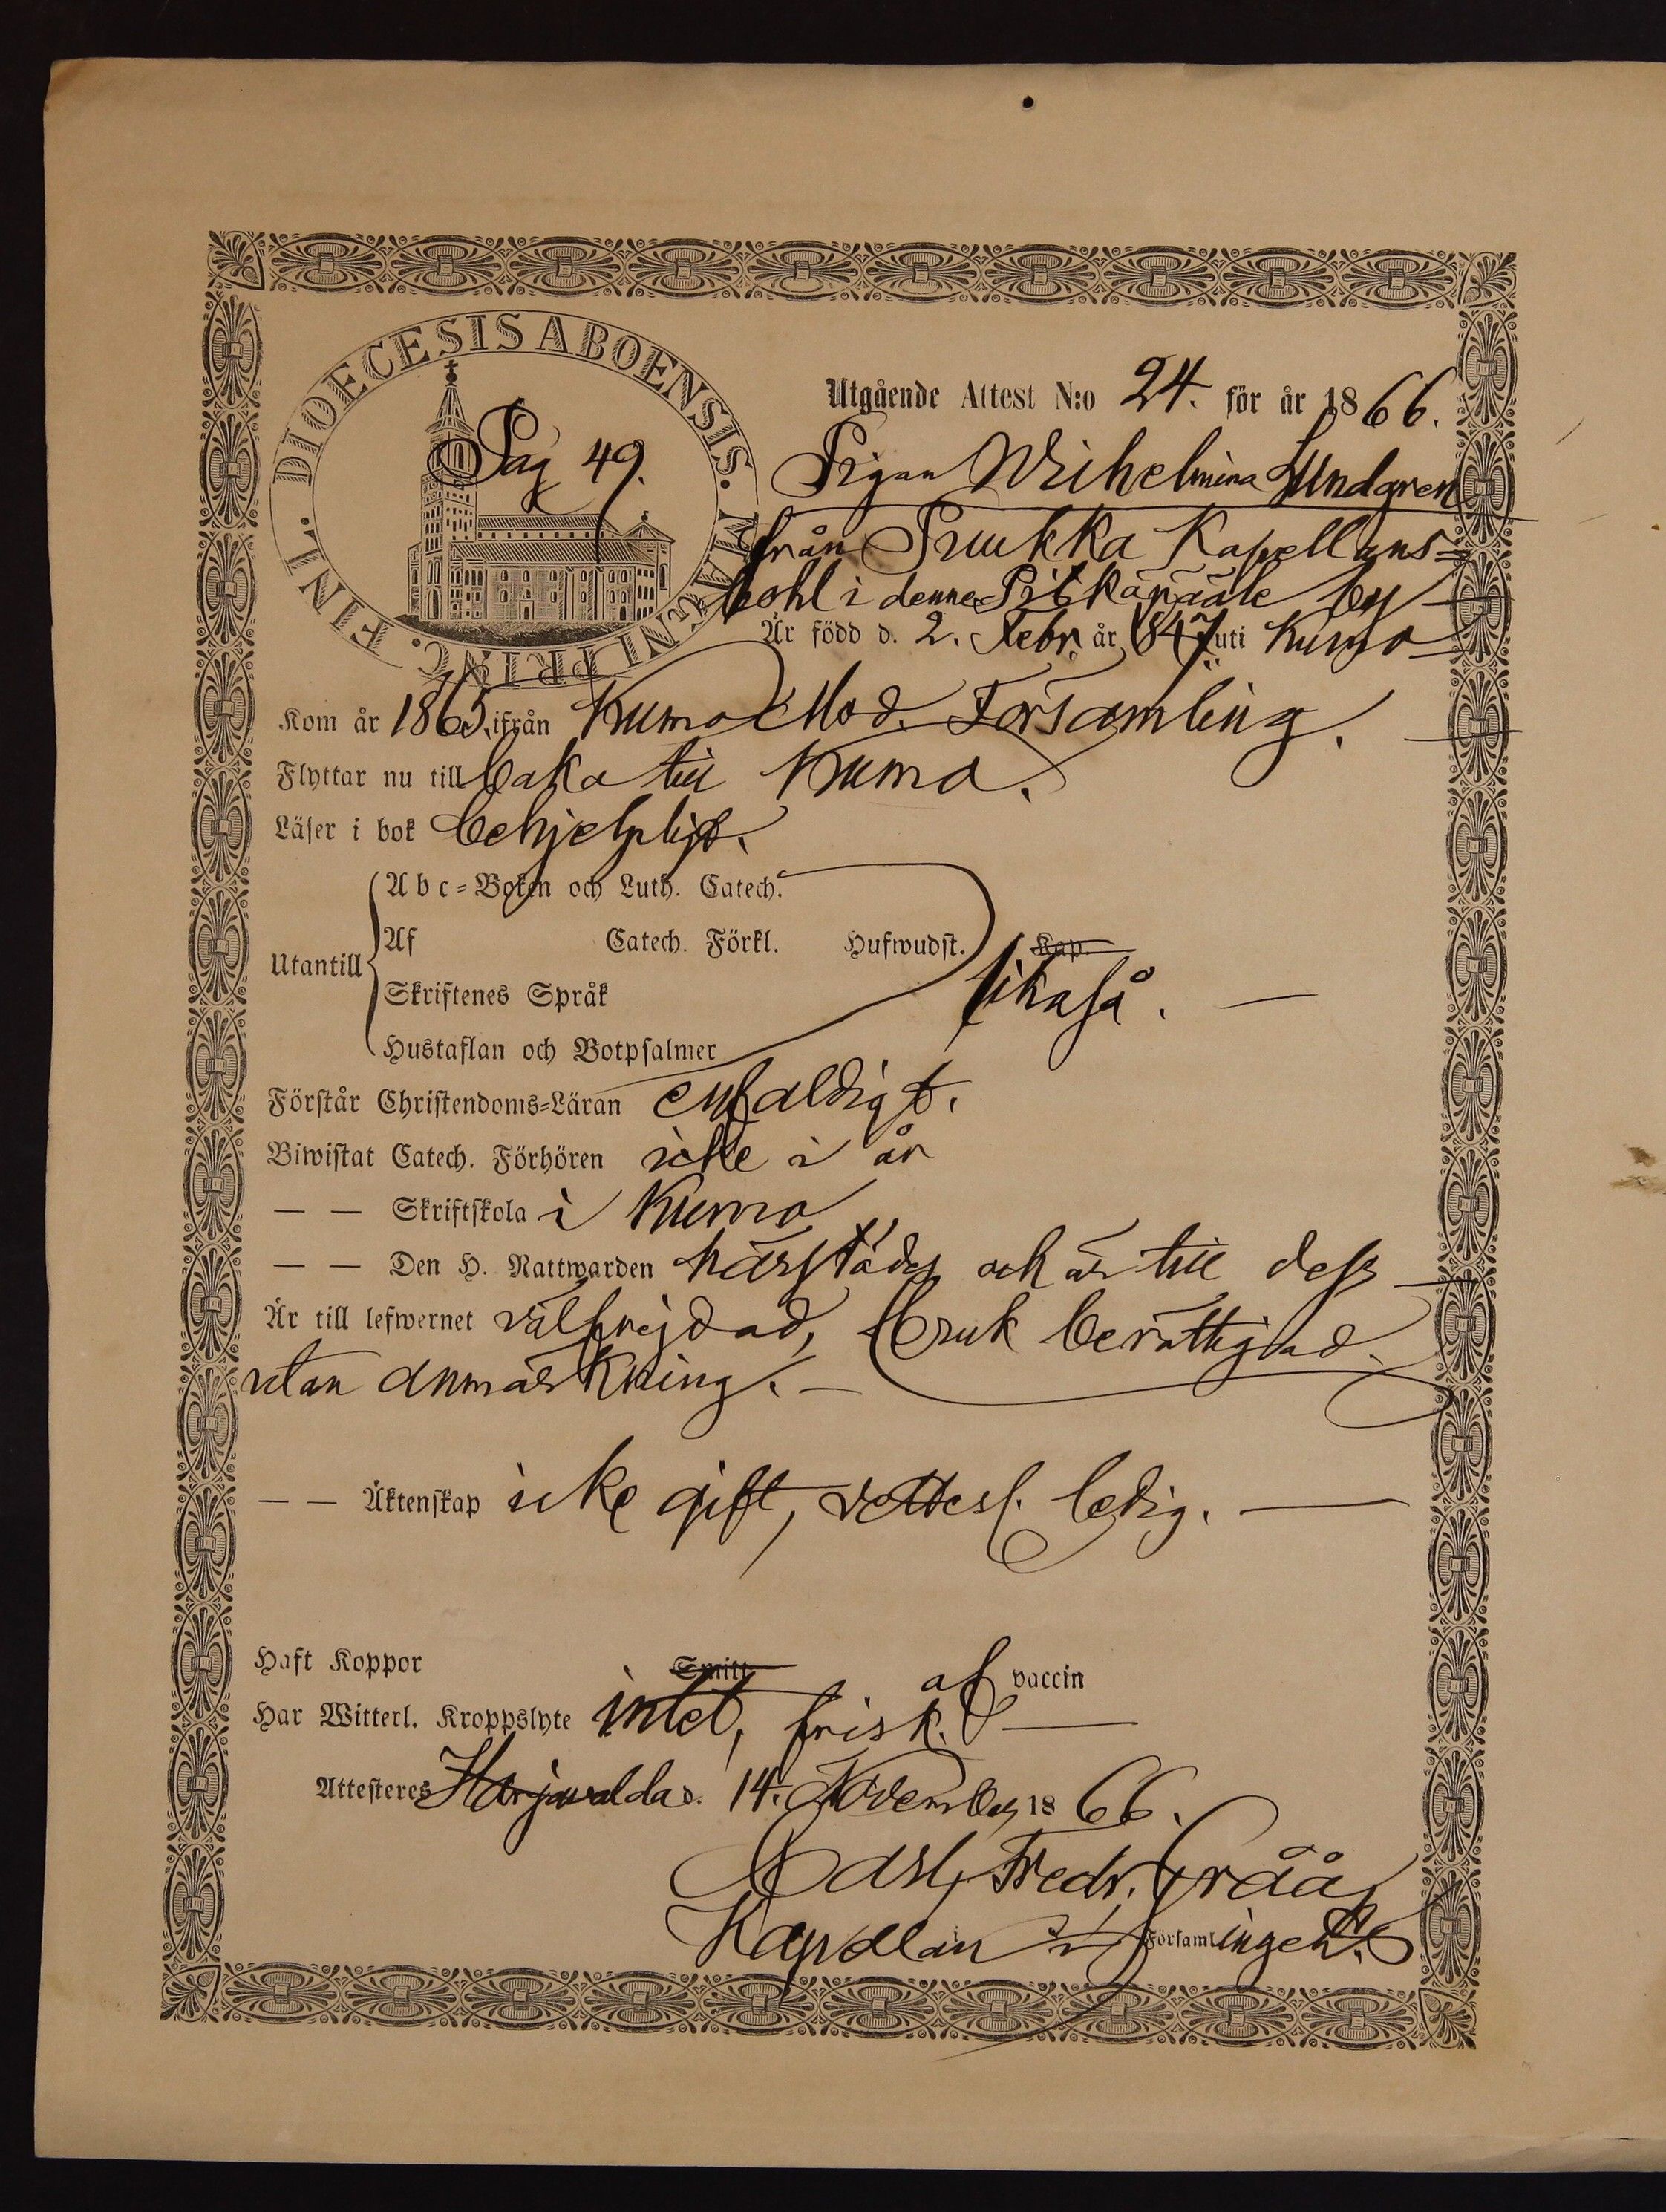 DIOECESIS ABOENSIS. MAGNI PRINC. FINL.
Pag 49.
Utgående Attest N:o 24. för år 1866.
Pigan Wilhelmina Lundgren
från Pruukka Kapellans-
bohl i denne Pitkäpäälä by
Är född d. 2. Febr. år 1847 uti Kumo
Kom år 1865. ifrån Kumo Mod. Församling.
Flyttar nu till baka till Kumo.
Läser i bok behjelpligt.
Utantill
Abc-Boken och Luth. Catech.
Af Catech. Förkl. Hufwudst. Kap.
Skriftenes Språk
likaså.
Hustaflan och Botpsalmer
Förstår Christendoms-Läran enfaldigt.
Biwistat Catech. Förhören icke i år
— — Skriftskola i Kumo
— — Den H. Nattwarden härstädes och är till dess
Är till lefwernet välfrejdad, bruk berättigad.
utan anmärkning. —
— — Äktenskap icke gift, ledig. —
Haft Koppor Smitt af vaccin
Har Witterl. Kroppslyte intet, frisk. —
Attesteres Harjavalda d. 14. November 1866.
Carl Fredr. Gråå
Kapellan i Församlingen.